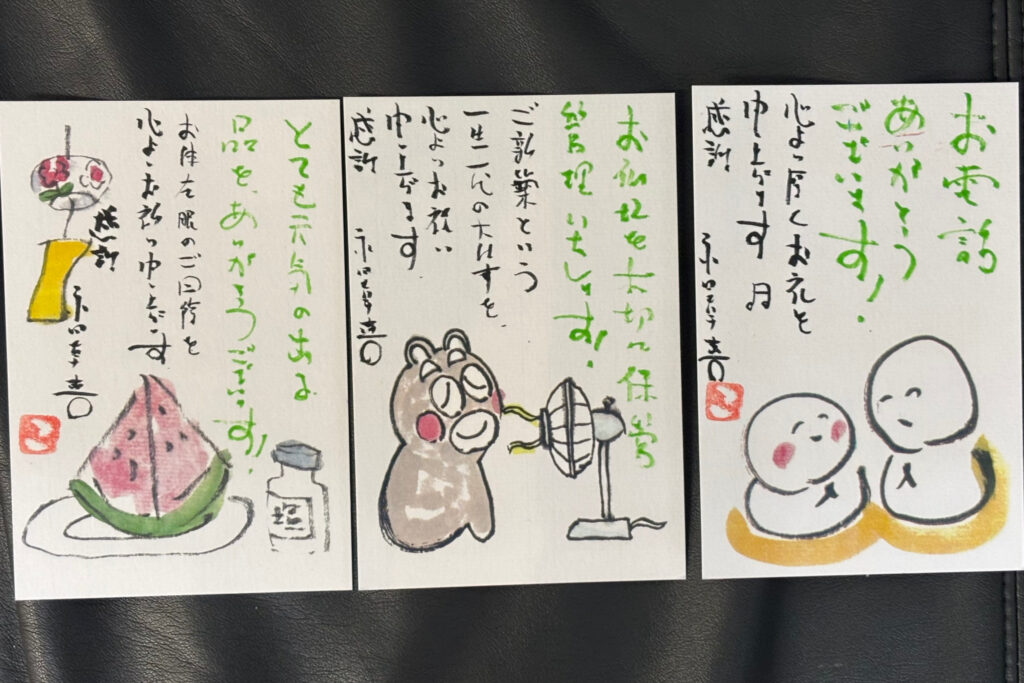 お電話
ありがとう
ございます!
心より厚くお礼を
申し上げます
感謝
を大切に保管
管理いたします!
ご新築という
一生一代の大仕事を、
心よりお祝い
申し上げます
感謝
とても元気の出る
品を、ありがとうございます!
お体 眼のご回復を
心よりお祈り申し上げます
感謝
塩